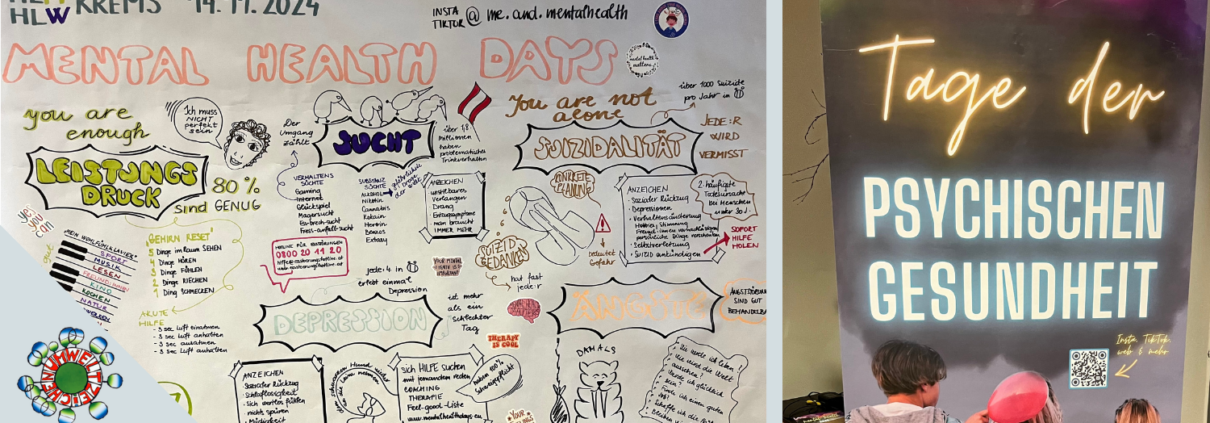 HLW KREMS 14.11.2024
INSTA
TIKTOK @ me.and.mentalhealth
MENTAL HEALTH DAYS
you are
enough
Ich muss
NICHT
perfekt
sein
LEISTUNGS
DRUCK
80%
sind GENUG
yes
you
can
MEIN WOHLFÜHLPLAN
SPORT
MUSIK
LESEN
KINO
KOCHEN
NATUR
"GEHIRN RESET"
5 Dinge im Raum SEHEN
4 Dinge HÖREN
3 Dinge FÜHLEN
2 Dinge RIECHEN
1 Ding SCHMECKEN
AKUTE
HILFE
- 3 sec Luft einatmen
- 3 sec Luft anhalten
- 3 sec ausatmen
- 3 sec Luft anhalten
Der
Umgang
zählt
SUCHT
über 1,8
Millionen
haben
problematisches
Trinkverhalten
VERHALTENS
SÜCHTE
Gaming
Internet
Glückspiel
Magersucht
Ess-brech-sucht
Fress-anfall-sucht
SUBSTANZ
SÜCHTE
Alkohol
Nikotin
Cannabis
Kokain
Heroin
Benzos
Extasy
gefährlichste
Droge
der Welt
ANZEICHEN
unstillbares
Verlangen
Drang
Entzugssymptome
man braucht
IMMER MEHR
0800 20 11 20
jede:4 in
erlebt einmal
Depression
DEPRESSION
ist mehr
als ein
schlechter
Tag
ANZEICHEN
Sozialer Rückzug
Schlaflosigkeit
Sich wertlos fühlen
nichts spüren
Müdigkeit
sich HILFE suchen
mit jemanden reden
COACHING
THERAPIE
Feel-good-Liste
www.mentalhealthdays.eu
haben 100%
Schweigepflicht
THERAPY
IS COOL
you are not
alone
über 1000 Suizide
pro Jahr in
SUIZIDALITÄT
JEDE:R
WIRD
VERMISST
KONKRETE
PLANUNG
bedeutet
Gefahr
SUIZID
GEDANKEN
hat fast
jede:r
ANZEICHEN
• Sozialer Rückzug
• Depressionen
• Verhaltensänderung
• Selbstverletzung
• SUIZID ankündigen
2 häufigste
Todesursache
Bei Menschen
unter 30!
SOFORT
HILFE
HOLEN
ANGSTSTÖRUNGEN
SIND GUT
BEHANDELBAR
DAMALS
UMWELTZEICHEN
Tage der
PSYCHISCHEN
GESUNDHEIT
Insta TikTok
web & mehr